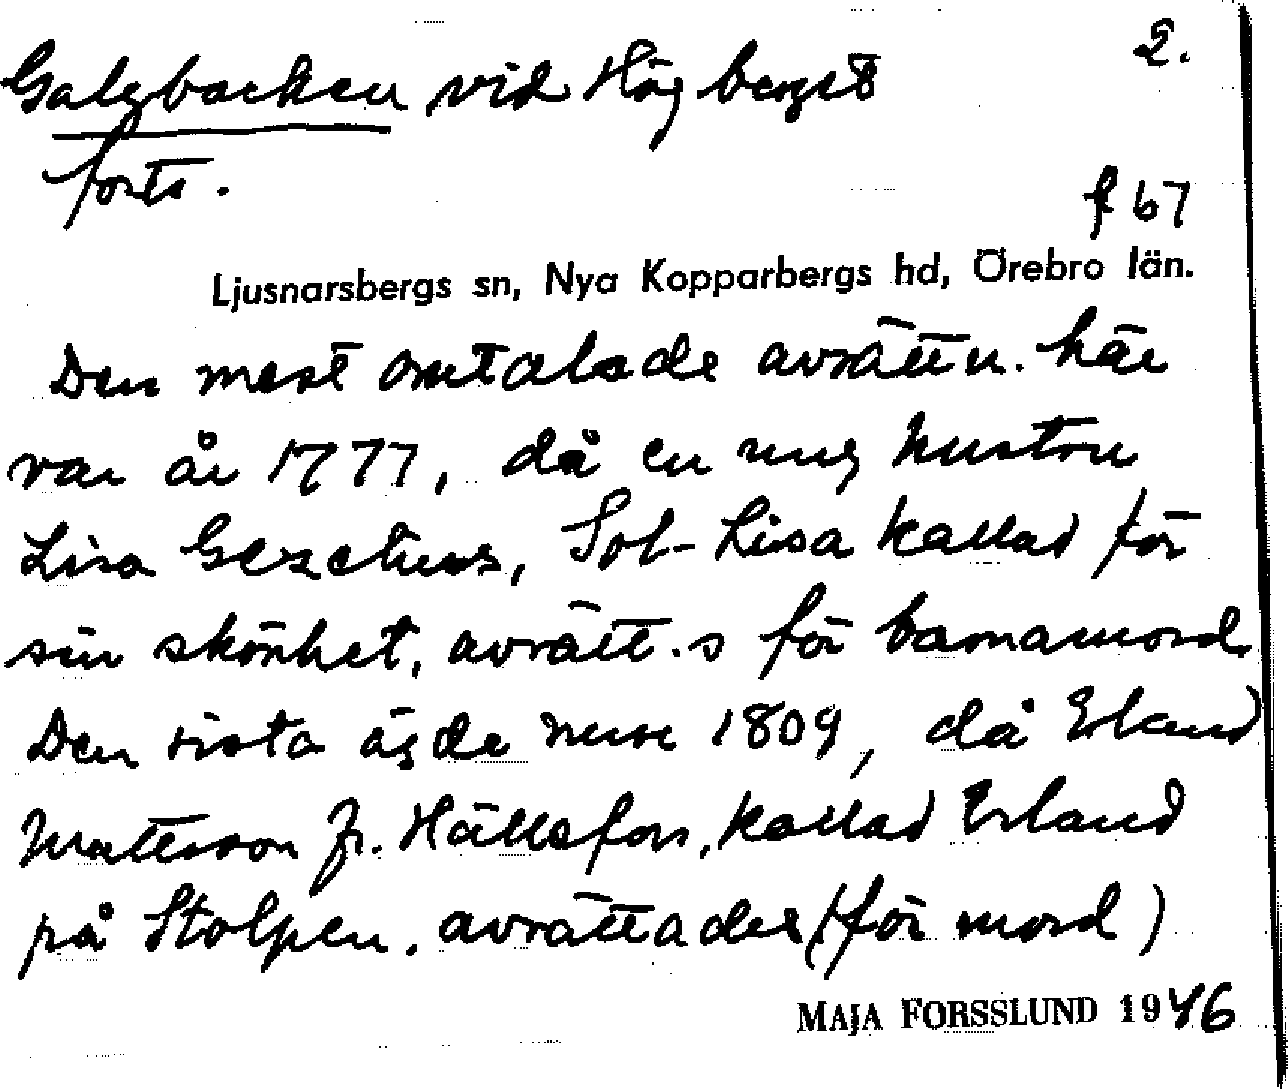 2.
Galgbacken vid Högberget
forts.
f 67
Ljusnarsbergs sn, Nya Kopparbergs hd, Örebro län.
Den mest omtalade avrättn. här
var år 1777, då en ung hustru
Lisa Gezelius, Sol-Lisa kallad för
sin skönhet, avrätt.s för barnamord.
Den sista ägde rum 1809, då Erland
Mattsson fr. Hällefors, kallad Erland
på Stolpen. avrättades (för mord)
MAJA FORSSLUND 1946